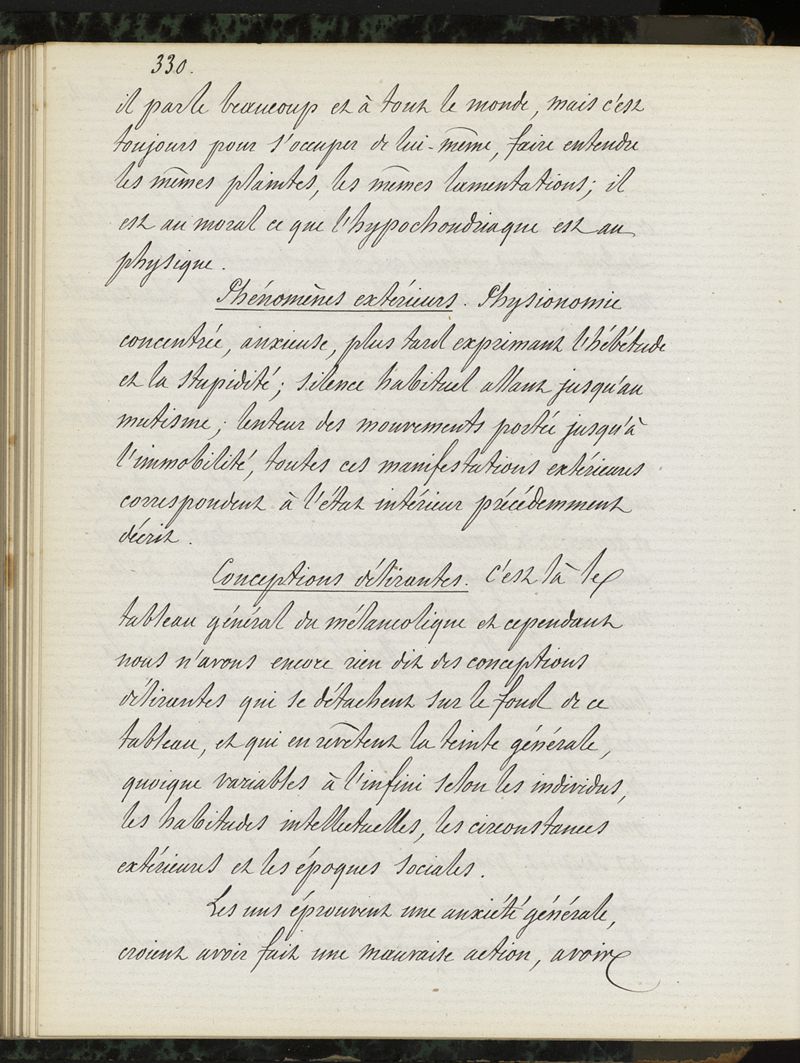 330.
il parle beaucoup et à tout le monde, mais c'est
toujours pour s'occuper de lui-même, faire entendre
les mêmes plaintes, les mêmes lamentations; il
est au moral ce que l'hypochondriaque est au
physique.
Phénomènes extérieurs. Physionomie
concentrée, anxieuse, plus tard exprimant l'hébétude
et la stupidité; silence habituel allant jusqu'au
mutisme; lenteur des mouvements portée jusqu'à
l'immobilité, toutes ces manifestations extérieures
correspondent à l'état intérieur précédemment
décrit.
Conceptions délirantes. C'est là le
tableau général du mélancolique et cependant
nous n'avons encore rien dit des conceptions
délirantes qui se détachent sur le fond de ce
tableau, et qui en revêtent la teinte générale,
quoique variables à l'infini selon les individus,
les habitudes intellectuelles, les circonstances
extérieures et les époques sociales.
Les uns éprouvent une anxiété générale,
croient avoir fait une mauvaise action, avoir